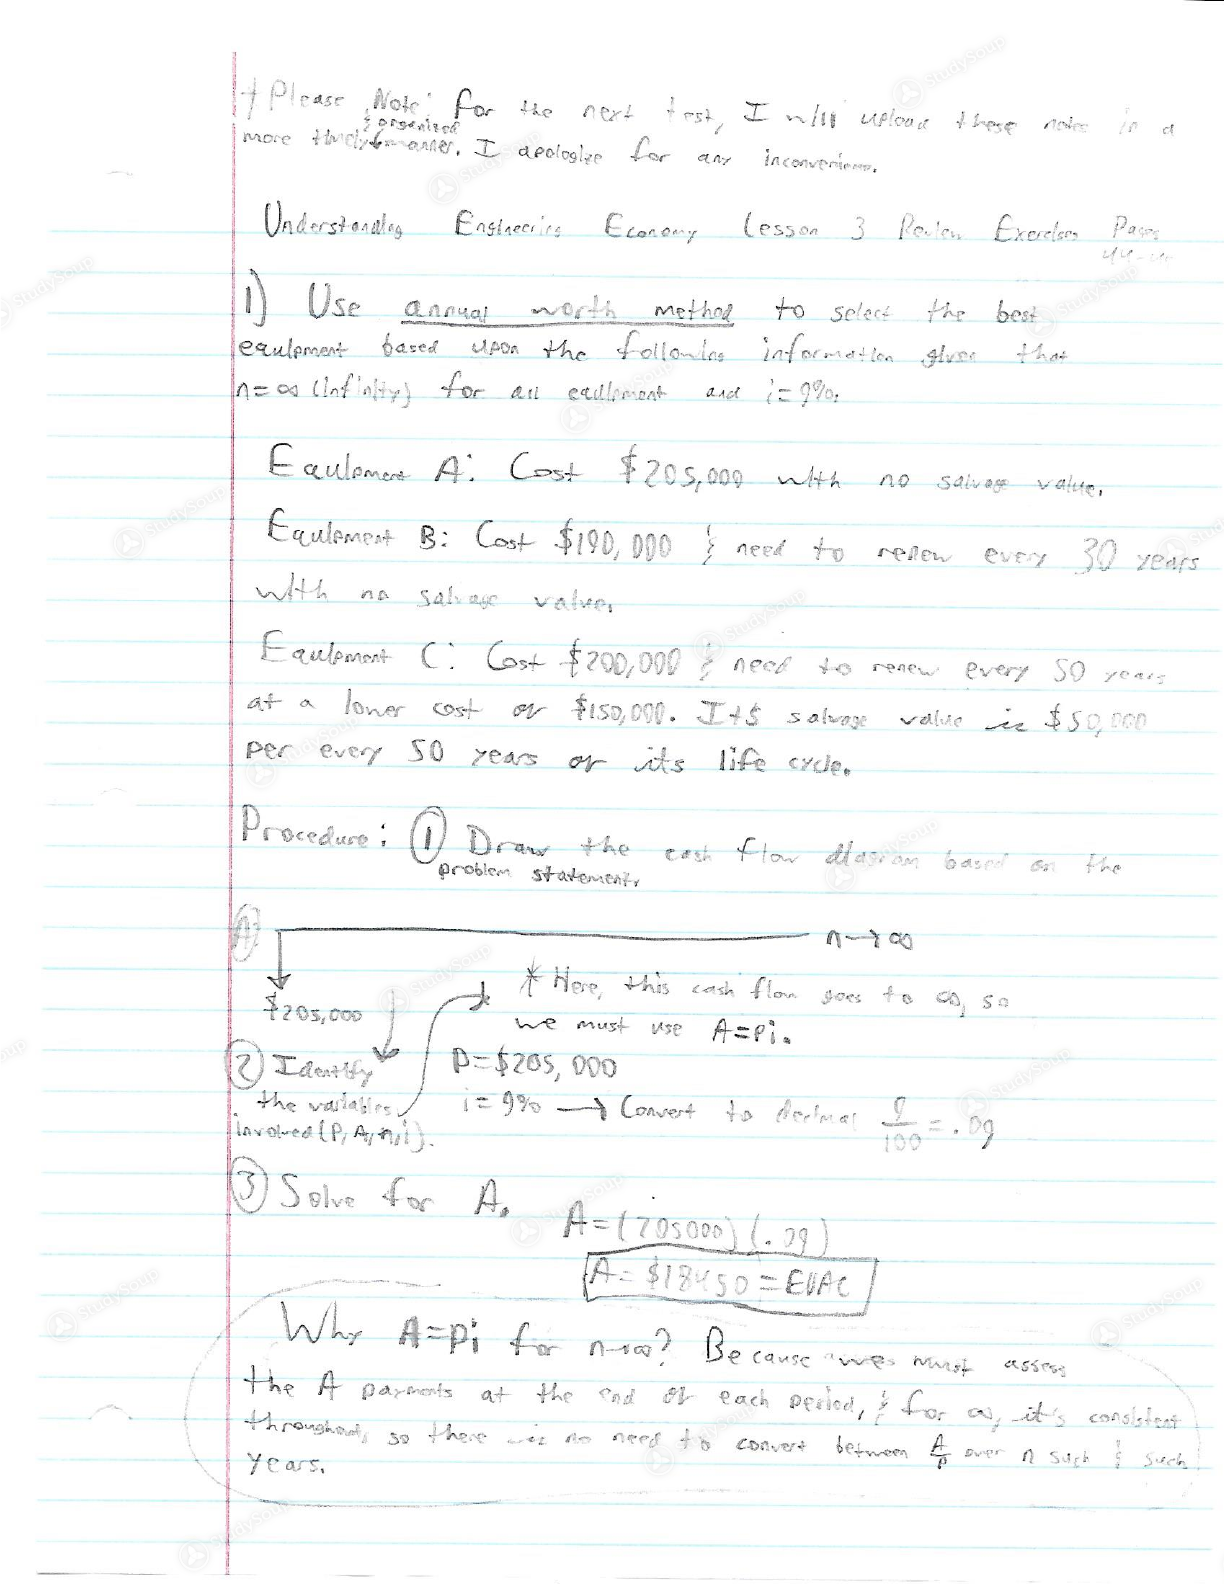 + Please Note: For the next test, I will upload these notes in a
& organized
more timely manner. I apologize for any inconvenience.
Understanding Engineering Economy Lesson 3 Review Exercises Pages
1) Use annual worth method to select the best
equipment based upon the following information given that
n=∞ (infinity) for all equipment and i=9%.
Equipment A: Cost $205,000 with no salvage value.
Equipment B: Cost $190,000 & need to renew every 30 years
with no salvage value.
Equipment C: Cost $200,000 & need to renew every 50 years
at a lower cost of $150,000. Its salvage value is $50,000
per every 50 years of its life cycle.
Procedure: ① Draw the cash flow diagram based on the
problem statement.
A) n→∞
$205,000
* Here, this cash flow goes to ∞, so
we must use A=Pi.
② Identify
the variables
involved (P, A, n, i).
P=$205,000
i=9% → Convert to decimal 9/100 = .09
③ Solve for A.
A=(205000)(.09)
A=$18450=EUAC
Why A=Pi for n→∞? Because we must assess
the A payments at the end of each period, & for ∞, it's consistent
throughout, so there is no need to convert between A/P over n such & such
years.
StudySoup